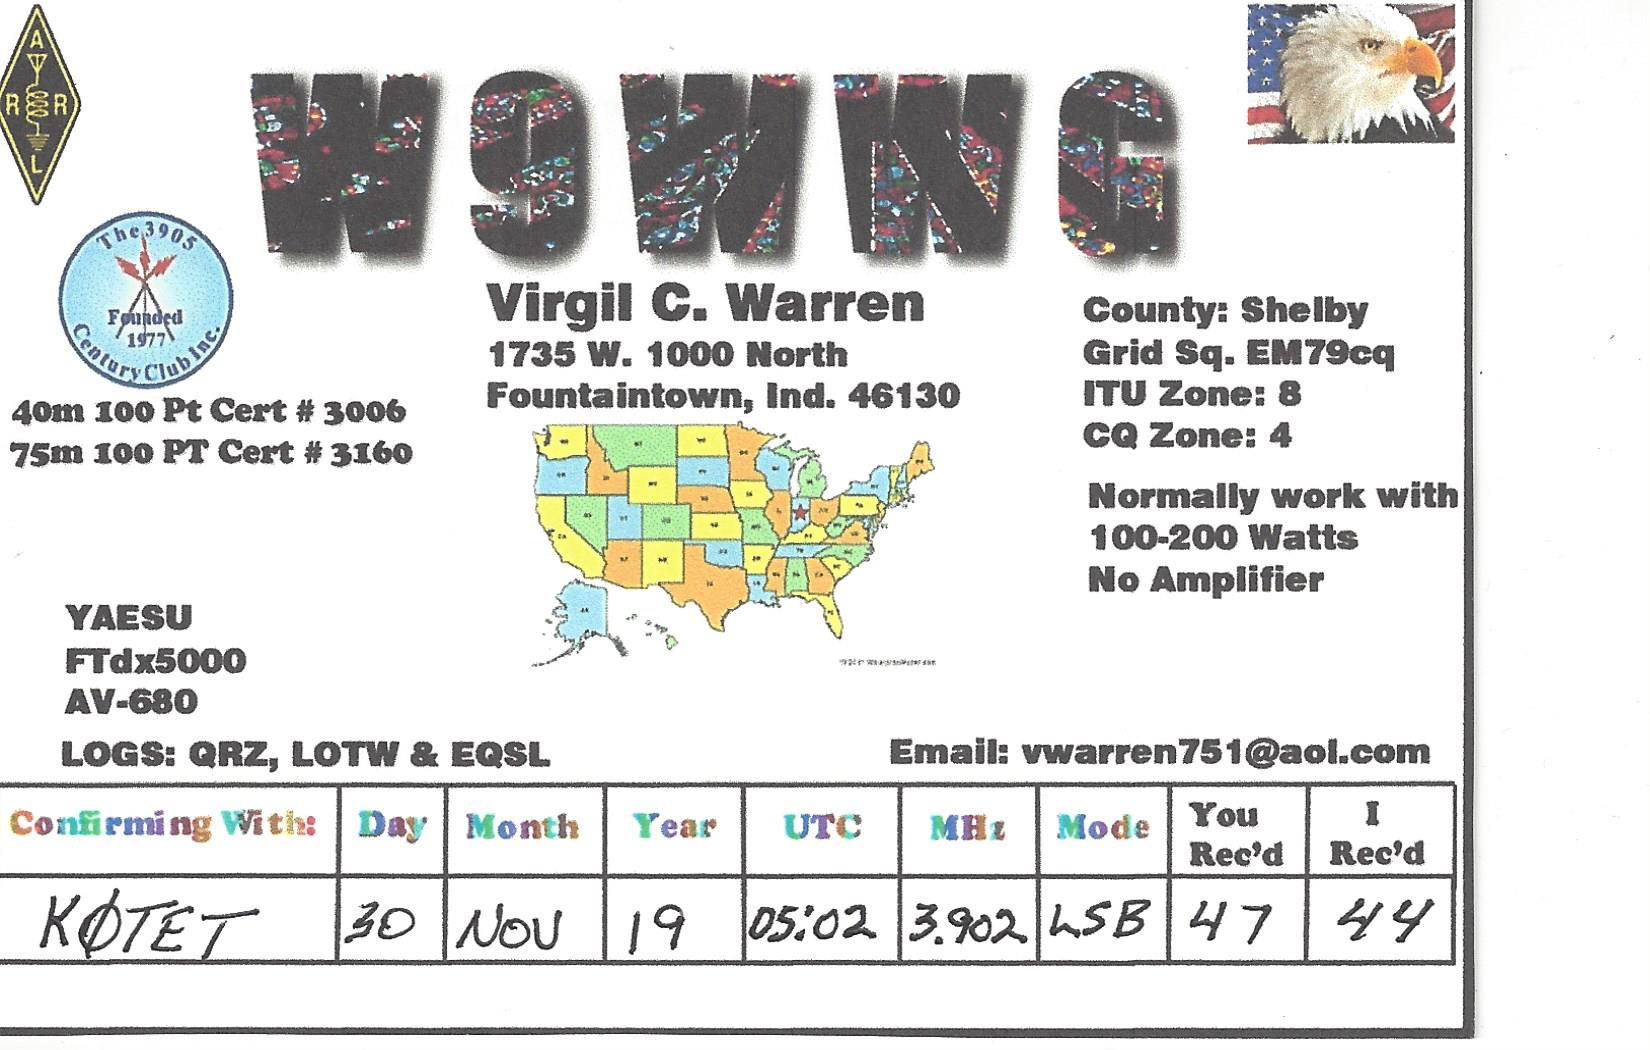 A
R R
L
W9WNG
The 3905
Founded
1977
Century Club Inc.
40m 100 Pt Cert # 3006
75m 100 PT Cert # 3160
Virgil C. Warren
1735 W. 1000 North
Fountaintown, Ind. 46130
County: Shelby
Grid Sq. EM79cq
ITU Zone: 8
CQ Zone: 4
Normally work with
100-200 Watts
No Amplifier
YAESU
FTdx5000
AV-680
LOGS: QRZ, LOTW & EQSL
Email: vwarren751@aol.com
Confirming With: Day Month Year UTC MHz Mode You Rec'd I Rec'd
KØTET 30 NOV 19 05:02 3.902 LSB 47 44